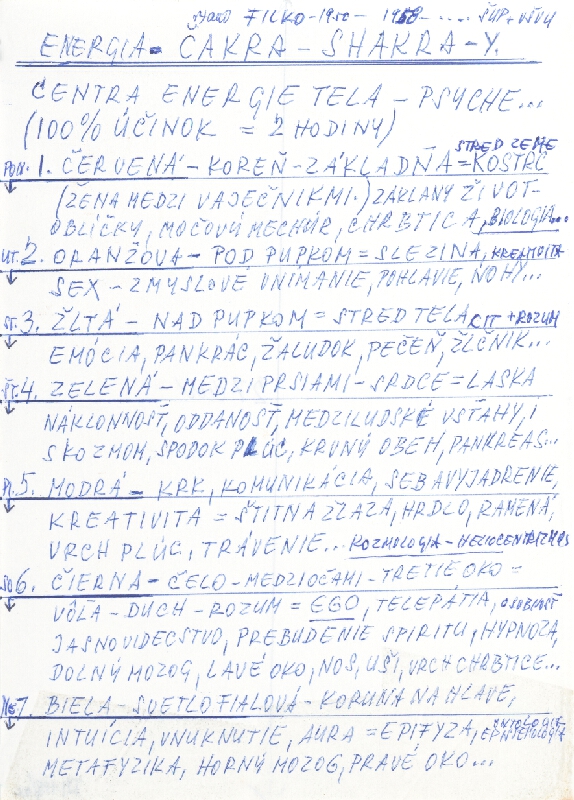 FILKO - 19
ENERGIA - ČAKRA - SHAKRA - Y.
CENTRA ENERGIE TELA - PSYCHE...
(100% ÚČINOK = 2 HODINY)
STRED ZEME
PON. 1. ČERVENÁ - KOREŇ - ZÁKLADŇA = KOSTRČ
(ŽENA MEDZI VAJEČNIKMI.) ZÁKLANY ŽIVOT-
OBLIČKY, MOČOVÝ MECHÚR, CHRBTICA, BIOLÓGIA...
UT. 2. ORANŽOVA - POD PUPKOM = SLEZINA,
SEX - ZMYSLOVÉ VNÍMANIE, POHLAVIE, NOHY...
ST. 3. ŽLTÁ - NAD PUPKOM = STRED TELA, CIT + ROZUM
EMÓCIA, PANKRÁC, ŽALUDOK, PEČEŇ, ŽLČNÍK...
ŠT. 4. ZELENÁ - MEDZI PRSIAMI - SRDCE = LASKA
NÁKLONNOSŤ, ODDANOSŤ, MEDZILUDSKÉ VSŤAHY, I
S KOZMOM, SPODOK PLÚC, KRVNÝ OBEH, PANKREAS...
PI. 5. MODRÁ - KRK, KOMUNIKÁCIA, SEBAVYJADRENIE,
KREATIVITA = ŠTITNA ŽLAZA, HRDLO, RAMENÁ,
VRCH PLÚC, TRÁVENIE... KOZMOLOGIA - HELIOCENTRIZMUS
SO 6. ČIERNA - ČELO - MEDZIOČAMI - TRETIE OKO =
VÔĽA - DUCH - ROZUM = EGO, TELEPÁTIA, OSOBNOSŤ
JASNOVIDECSTVO, PREBUDENIE SPIRITU, HYPNOZA,
DOLNÝ MOZOG, LAVÉ OKO, NOS, UŠI, VRCH CHRBTICE...
NE 7. BIELA - SVETLOFIALOVÁ - KORUNA NA HLAVE,
INTUÍCIA, VNUKNUTIE, AURA = EPIFYZA,
METAFYZIKA, HORNÝ MOZOG, PRAVÉ OKO...